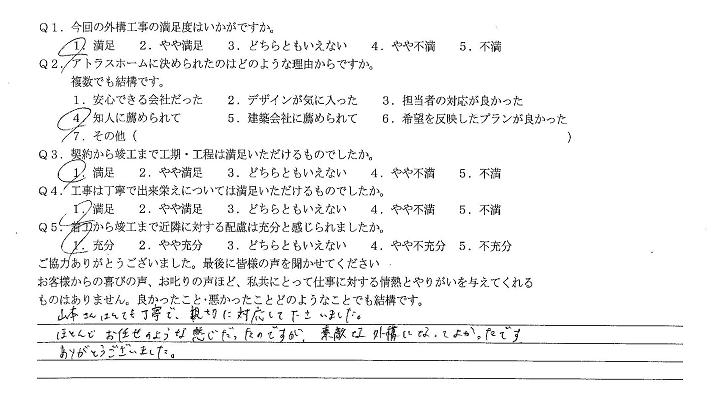 Q1. 今回の外構工事の満足度はいかがですか。
1. 満足 2. やや満足 3. どちらともいえない 4. やや不満 5. 不満
Q2. アトラスホームに決められたのはどのような理由からですか。
複数でも結構です。
1. 安心できる会社だった 2. デザインが気に入った 3. 担当者の対応が良かった
4. 知人に薦められて 5. 建築会社に薦められて 6. 希望を反映したプランが良かった
7. その他( )
Q3. 契約から竣工まで工期・工程は満足いただけるものでしたか。
1. 満足 2. やや満足 3. どちらともいえない 4. やや不満 5. 不満
Q4. 工事は丁寧で出来栄えについては満足いただけるものでしたか。
1. 満足 2. やや満足 3. どちらともいえない 4. やや不満 5. 不満
Q5. 着工から竣工まで近隣に対する配慮は充分と感じられましたか。
1. 充分 2. やや充分 3. どちらともいえない 4. やや不充分 5. 不充分
ご協力ありがとうございました。最後に皆様の声を聞かせてください
お客様からの喜びの声、お叱りの声ほど、私共にとって仕事に対する情熱とやりがいを与えてくれる
ものはありません。良かったこと・悪かったことどのようなことでも結構です。
山本さんはとても丁寧で、親切に対応して下さいました。
ほとんどお任せのような感じだったのですが、素敵な外構になってよかったです
ありがとうございました。